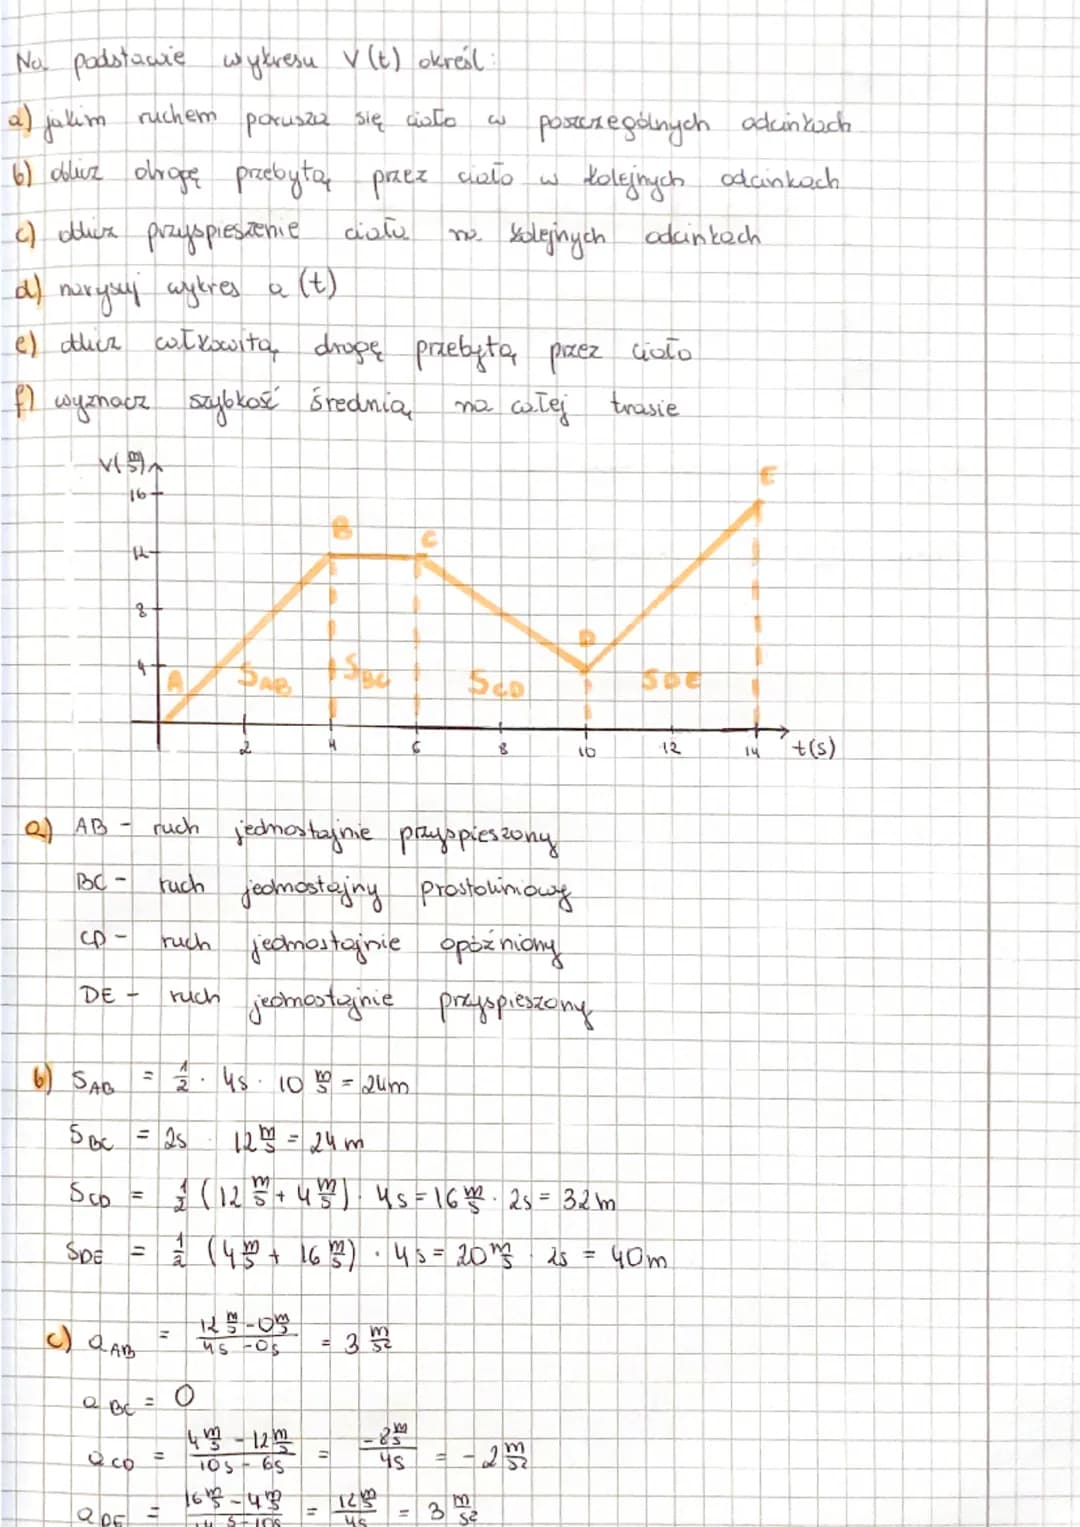 Na podstawie wykresu V(t) określ:
a) jakim ruchem porusza się ciało w poszczególnych odcinkach
b) oblicz drogę przebytą przez ciało w kolejnych odcinkach
c) oblicz przyspieszenie ciała na kolejnych odcinkach
d) narysuj wykres a(t)
e) oblicz całkowitą drogę przebytą przez ciało
f) wyznacz szybkość średnią na całej trasie
V(m/s)
16
12
8
4
A
B
C
D
E
SAB
SBC
SCD
SDE
2 4 6 8 10 12 14 t(s)
a) AB - ruch jednostajnie przyspieszony
BC - ruch jednostajny prostoliniowy
CD - ruch jednostajnie opóźniony
DE - ruch jednostajnie przyspieszony
b) SAB = 1/2 · 4s · 10 m/s = 24m
SBC = 2s · 12 m/s = 24 m
SCD = 1/2 (12 m/s + 4 m/s) · 4s = 16 m/s · 2s = 32m
SDE = 1/2 (4 m/s + 16 m/s) · 4s = 20 m/s · 2s = 40m
c) aAB = (12 m/s - 0 m/s)/(4s - 0s) = 3 m/s²
aBC = 0
aCD = (4 m/s - 12 m/s)/(10s - 6s) = (-8 m/s)/4s = -2 m/s²
aDE = (16 m/s - 4 m/s)/(14s - 10s) = (12 m/s)/4s = 3 m/s²